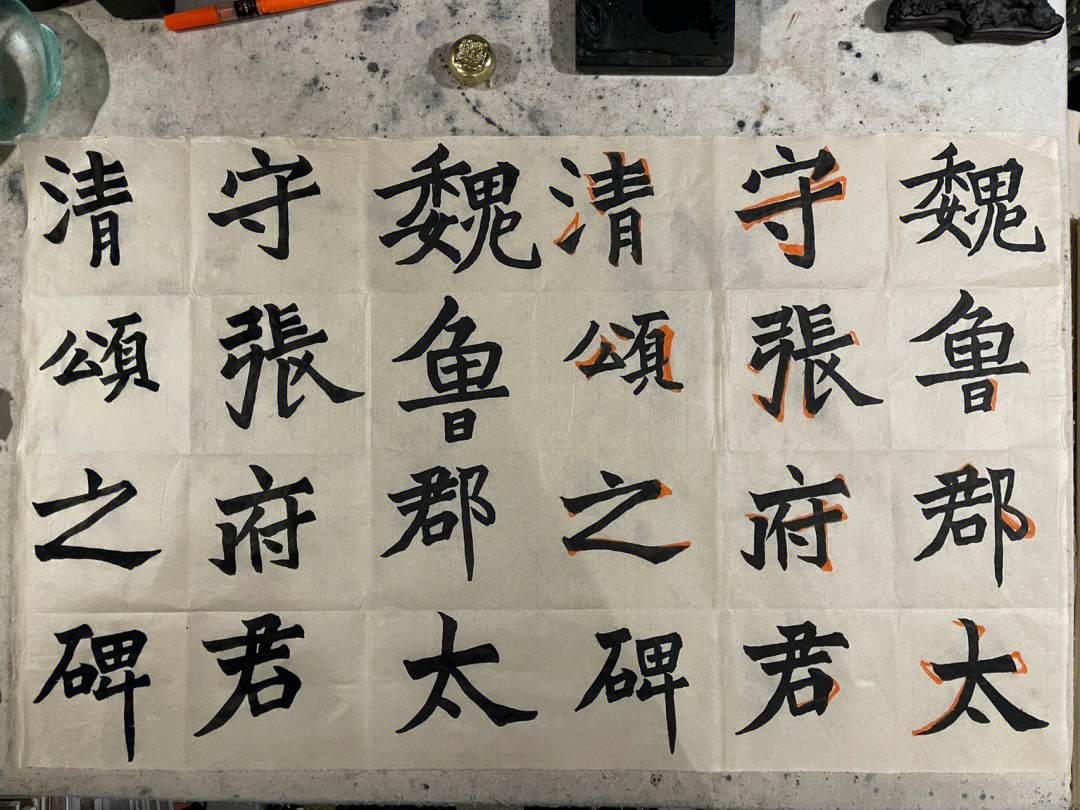 魏魯郡太
守張府君
清頌之碑
魏魯郡太
守張府君
清頌之碑